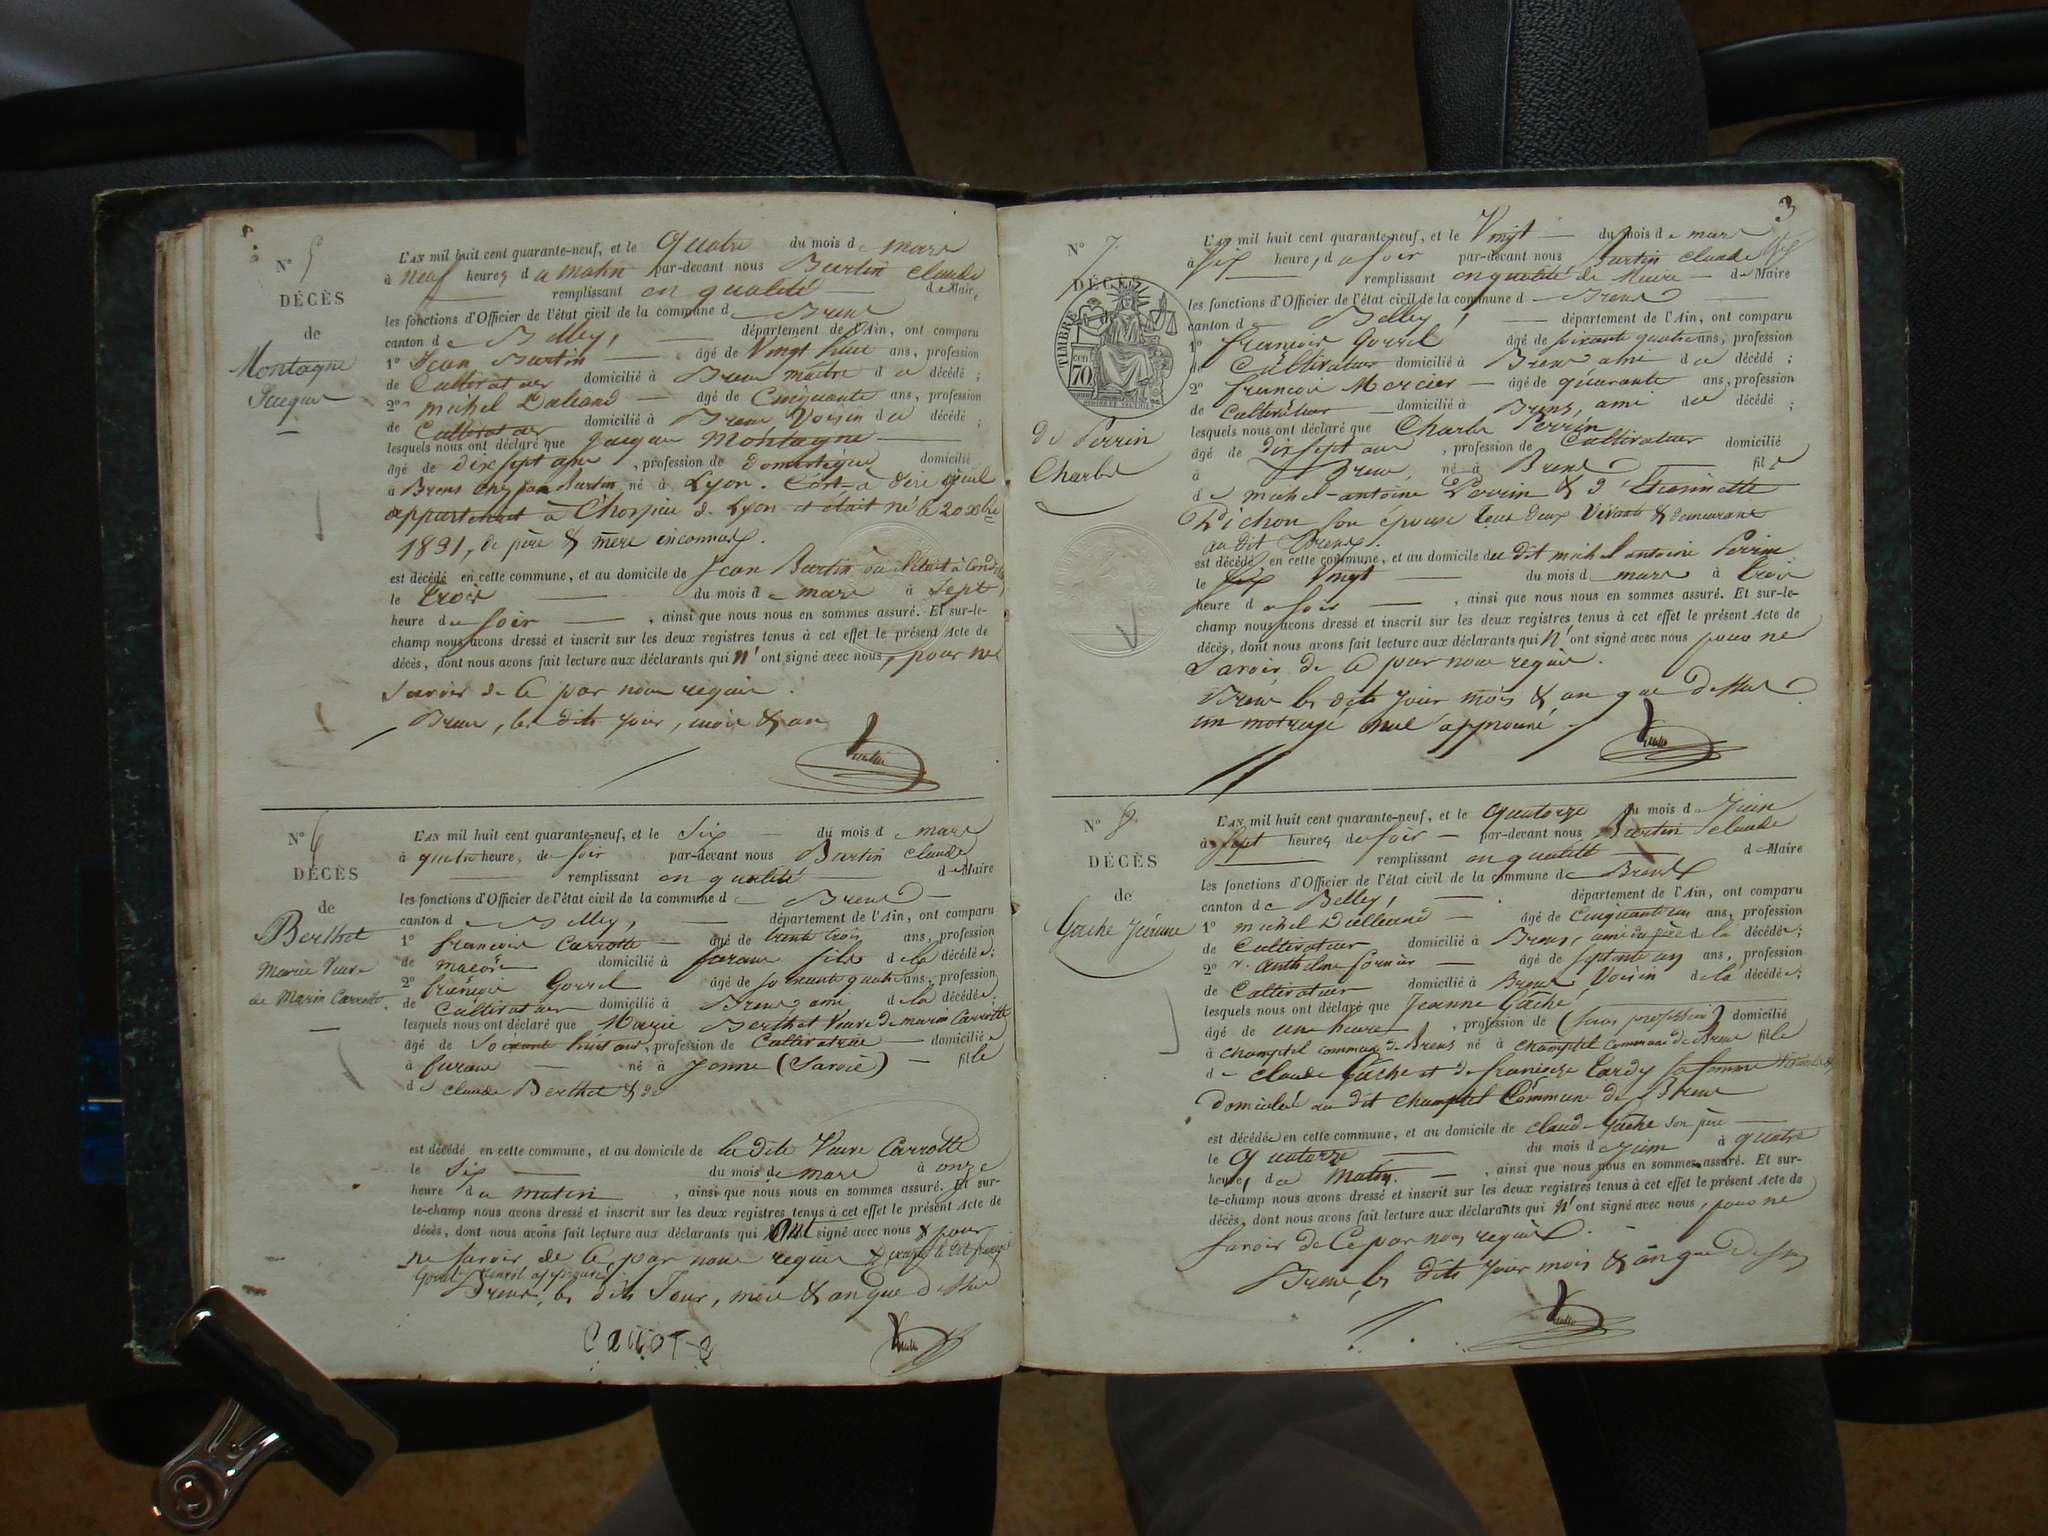 N° 5
DÉCÈS
de
Montagne
Jacques
L'AN mil huit cent quarante-neuf, et le quatre du mois de mars
à neuf heures du matin par-devant nous Burtin Claude
remplissant en qualité de Maire
les fonctions d'Officier de l'état civil de la commune de Brens
canton de Belley, département de l'Ain, ont comparu
1° Jean Burtin âgé de vingt huit ans, profession
de Cultivateur domicilié à Brens maître du décédé ;
2° michel Daleand âgé de Cinquante ans, profession
de Cultivateur domicilié à Brens Voisin du décédé ;
lesquels nous ont déclaré que Jacques Montagne
âgé de dix sept ans, profession de domestique domicilié
à Brens chez Jean Burtin né à Lyon. C'est à dire qu'il
appartenait à l'hospice de Lyon et était né le 20 xbre
1831, de père & mère inconnus.
est décédé en cette commune, et au domicile de Jean Burtin où il était à
le trois du mois de mars à sept
heure du soir, ainsi que nous nous en sommes assuré. Et sur-le-
champ nous avons dressé et inscrit sur les deux registres tenus à cet effet le présent Acte de
décès, dont nous avons fait lecture aux déclarants qui n'ont signé avec nous, pour ne
savoir de ce par nous requis.
Brens, les dits jour, mois & an
N° 6
DÉCÈS
de
Berthet
Marie Veuve
de Marin Carrotte
L'AN mil huit cent quarante-neuf, et le six du mois de mars
à quatre heures du soir par-devant nous Burtin Claude
remplissant en qualité de Maire
les fonctions d'Officier de l'état civil de la commune de Brens
canton de Belley, département de l'Ain, ont comparu
1° françois Carrotte âgé de trente trois ans, profession
de maçon domicilié à furans fils de la décédée ;
2° françois Gorrel âgé de soixante quatre ans, profession
de Cultivateur domicilié à Brens ami de la décédée.
lesquels nous ont déclaré que Marie Berthet Veuve de marin Carrotte
âgé de soixante huit ans, profession de Cultivatrice domiciliée
à furans né à Yenne (Savoie) fille
de claude Berthet & de
est décédé en cette commune, et au domicile de la dite Veuve Carrotte
le six du mois de mars à onze
heure du matin, ainsi que nous nous en sommes assuré. Et sur-
le-champ nous avons dressé et inscrit sur les deux registres tenus à cet effet le présent Acte de
décès, dont nous avons fait lecture aux déclarants qui ont signé avec nous & pour
ne savoir de ce par nous requis excepté le dit françois
Gorrel
Brens, les dits Jour, mois & an que dessus
3
N° 7
DÉCÈS
TIMBRE
70
de Perrin
Charles
L'AN mil huit cent quarante-neuf, et le Vingt du mois de mars
à six heure, du soir par-devant nous Burtin claude
remplissant en qualité de Maire de Maire
les fonctions d'Officier de l'état civil de la commune de Brens
canton de Belley, département de l'Ain, ont comparu
1° françois Gorrel âgé de soixante quatre ans, profession
de Cultivateur domicilié à Brens ami du décédé ;
2° françois Mercier âgé de quarante ans, profession
de Cultivateur domicilié à Brens, ami du décédé ;
lesquels nous ont déclaré que Charles Perrin
âgé de dix sept ans, profession de Cultivateur domicilié
à Brens né à Brens fils
de michel-antoine Perrin & d'
Pichon son épouse tous deux Vivants & demeurant
au dit Brens.
est décédé en cette commune, et au domicile du dit michel antoine Perrin
le six Vingt du mois de mars à trois
heure du soir, ainsi que nous nous en sommes assuré. Et sur-le-
champ nous avons dressé et inscrit sur les deux registres tenus à cet effet le présent Acte de
décès, dont nous avons fait lecture aux déclarants qui n'ont signé avec nous pour ne
savoir de ce par nous requis.
Brens les dits jour mois & an que dessus
un mot rayé nul approuvé.
N° 8
DÉCÈS
de
Gache Jeanne
L'AN mil huit cent quarante-neuf, et le quatorze du mois de Juin
à sept heures du soir par-devant nous Burtin claude
remplissant en qualité de Maire
les fonctions d'Officier de l'état civil de la commune de Brens
canton de Belley, département de l'Ain, ont comparu
1° michel Dalleand âgé de cinquante un ans, profession
de Cultivateur domicilié à Brens, ami du père de la décédée ;
2° anthelme fornier âgé de septante un ans, profession
de Cultivateur domicilié à Brens Voisin de la décédée ;
lesquels nous ont déclaré que Jeanne Gâche
âgé de une heure, profession de (sans profession) domicilié
à champtel commune de Brens né à champtel commune de Brens fille
de claude Gâche et de françoise Tardy sa femme
domiciliés au dit champtel Commune de Brens
est décédée en cette commune, et au domicile de claude Gâche son père
le quatorze du mois de Juin à quatre
heure, du matin, ainsi que nous nous en sommes assuré. Et sur-
le-champ nous avons dressé et inscrit sur les deux registres tenus à cet effet le présent Acte de
décès, dont nous avons fait lecture aux déclarants qui n'ont signé avec nous, pour ne
savoir de Ce par nous requis.
Brens, les dits jour mois & an que dessus